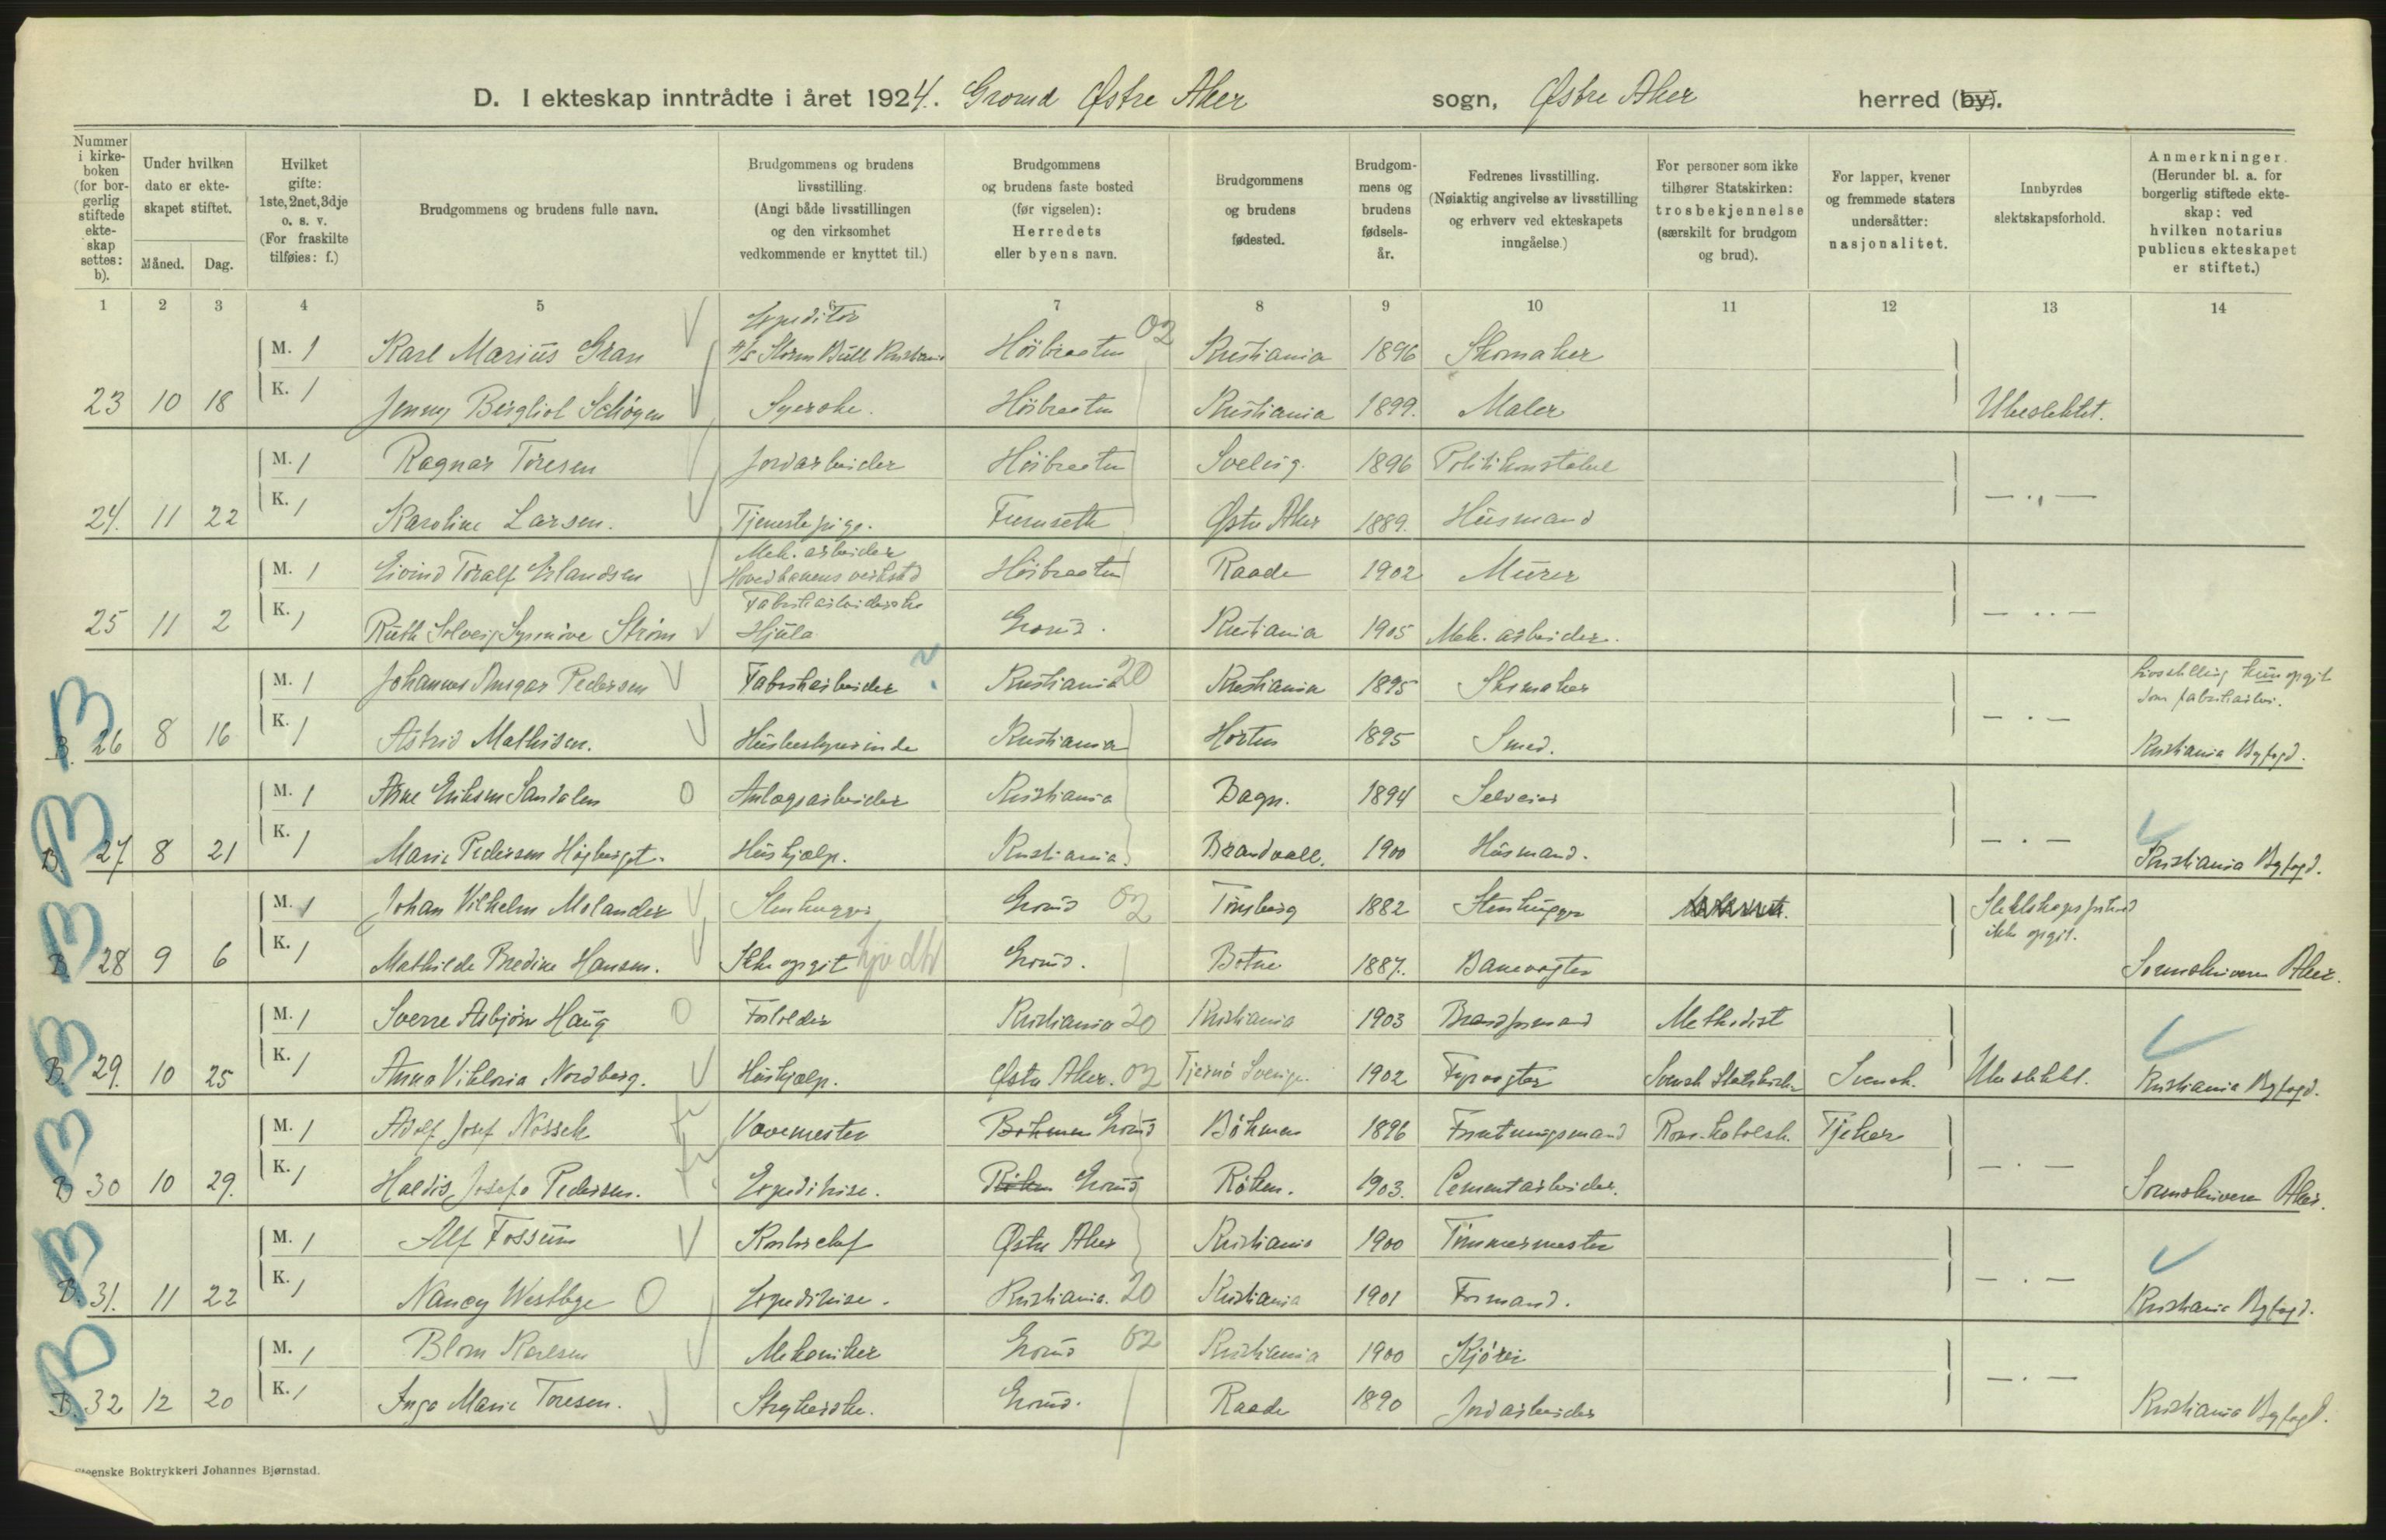 D. I ekteskap inntrådte i året 1924. Grorud Østre Aker sogn, Østre Aker herred (by).
Nummer i kirkeboken (for borgerlig stiftede ekteskap settes: b).
Under hvilken dato er ekteskapet stiftet.
Måned. Dag.
Hvilket gifte: 1ste, 2net, 3dje o. s. v. (For fraskilte tilføies: f.)
Brudgommens og brudens fulle navn.
Brudgommens og brudens livsstilling. (Angi både livsstillingen og den virksomhet vedkommende er knyttet til.)
Brudgommens og brudens faste bosted (før vigselen): Herredets eller byens navn.
Brudgommens og brudens fødested.
Brudgommens og brudens fødselsår.
Fedrenes livsstilling. (Nøiaktig angivelse av livsstilling og erhverv ved ekteskapets inngåelse.)
For personer som ikke tilhører Statskirken: trosbekjennelse (særskilt for brudgom og brud).
For lapper, kvener og fremmede staters undersåtter: nasjonalitet.
Innbyrdes slektskapsforhold.
Anmerkninger. (Herunder bl. a. for borgerlig stiftede ekteskap: ved hvilken notarius publicus ekteskapet er stiftet.)
1 2 3 4 5 6 7 8 9 10 11 12 13 14
M. 1 Karl Marius Gran Expeditør A/S Storm Bull Kristiania Høibraaten 02 Kristiania 1896 Skomaker
23 10 18 K. 1 Jenny Bergliot Schøgen Syerske. Høibraaten Kristiania 1899. Maler Ubeslektet.
M. 1 Ragnar Toresen Jordarbeider Høibraaten Svelvig. 1896 Politikonstabel
24. 11 22 K. 1 Karoline Larsen. Tjenestepige. Furuseth Østre Aker 1889. Husmand — " —
M. 1 Eivind Toralf Erlandsen Mek. arbeider Hovedbanens verksted Høibraaten Raade 1902 Murer
25 11 2 K. 1 Ruth Solveig Synnøve Strøm Fabrikarbeiderske Hjula Grorud. Kristiania 1905 Mek. arbeider. — " —
M. 1 Johannes Ansgar Pedersen Fabrikarbeider Kristiania 20 Kristiania 1895 Skomaker Livsstilling kun opgit som fabrikarbei.
B. 26 8 16 K. 1 Astrid Mathisen. Husbestyrerinde Kristiania Horten 1895 Smed. — " — Kristiania Byfogd.
M. 1 Arne Eriksen Sandalen O Anlægsarbeider Kristiania Bagn. 1894 Selveier
B. 27 8 21 K. 1 Marie Pedersen Høgberget. Hushjælp. Kristiania. Brandvall. 1900 Husmand. — " — Kristiania Byfogd.
M. 1 Johan Vilhelm Molander Stenhugger Grorud 02 Tønsberg 1882 Stenhugger Slektskapsforhold ikke opgit.
B. 28 9 6 K. 1 Mathilde Bredine Hansen. Ikke opgit Grorud. Botne 1887. Banevogter Sorenskriveren Aker.
M. 1 Sverre Asbjørn Haug O Forlolder Kristiania 20 Kristiania 1903 Brandformand Methodist
B. 29. 10 25 K. 1 Anna Viktoria Nordberg. Hushjælp. Østre Aker. 02 Tjernø Sverige. 1902 Fyrvogter Svensk Statskirke Svensk. Ubeslektet. Kristiania Byfogd.
M. 1 Adolf Josef Nossek Vævemester Bøhmen Grorud Bøhmen 1896 Forretningsmand Rom. katolsk. Tjeker
B 30 10 29. K. 1 Haldis Josefa Pedersen. Expeditrise. Røken Grorud Røken. 1903. Cementarbeider. — " — Sorenskriveren Aker.
M. 1 Alf Fossum Kontorchef Østre Aker Kristiania 1900 Tømmermester
B. 31. 11 22 K. 1 Nancy Westbye O Expeditrise. Kristiania. 20 Kristiania 1901 Formand. — " — Kristiania Byfogd.
M. 1 Blom Karlsen Mekaniker Grorud 02 Kristiania 1900 Kjører
B. 32 12 20 K. 1 Inga Marie Toresen. Strykerske. Grorud. Raade 1890 Jordarbeider — " — Kristiania Byfogd.
Steenske Boktrykkeri Johannes Bjørnstad.